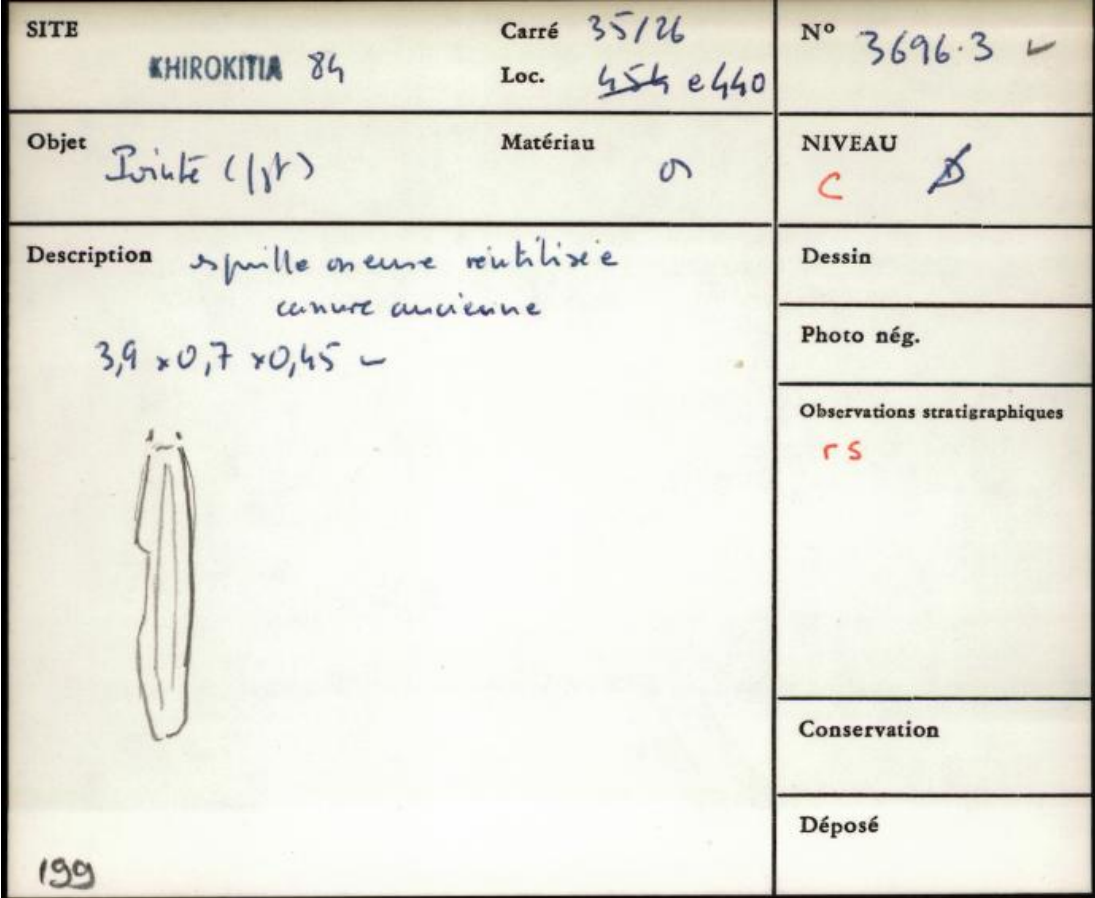 SITE
KHIROKITIA 84
Carré 35/26
Loc. 454 e440
N° 3696.3
Objet Pointe (fgt)
Matériau os
NIVEAU
C
Description esquille osseuse réutilisée
cassure ancienne
3,9 x 0,7 x 0,45
Dessin
Photo nég.
Observations stratigraphiques
rs
Conservation
Déposé
199